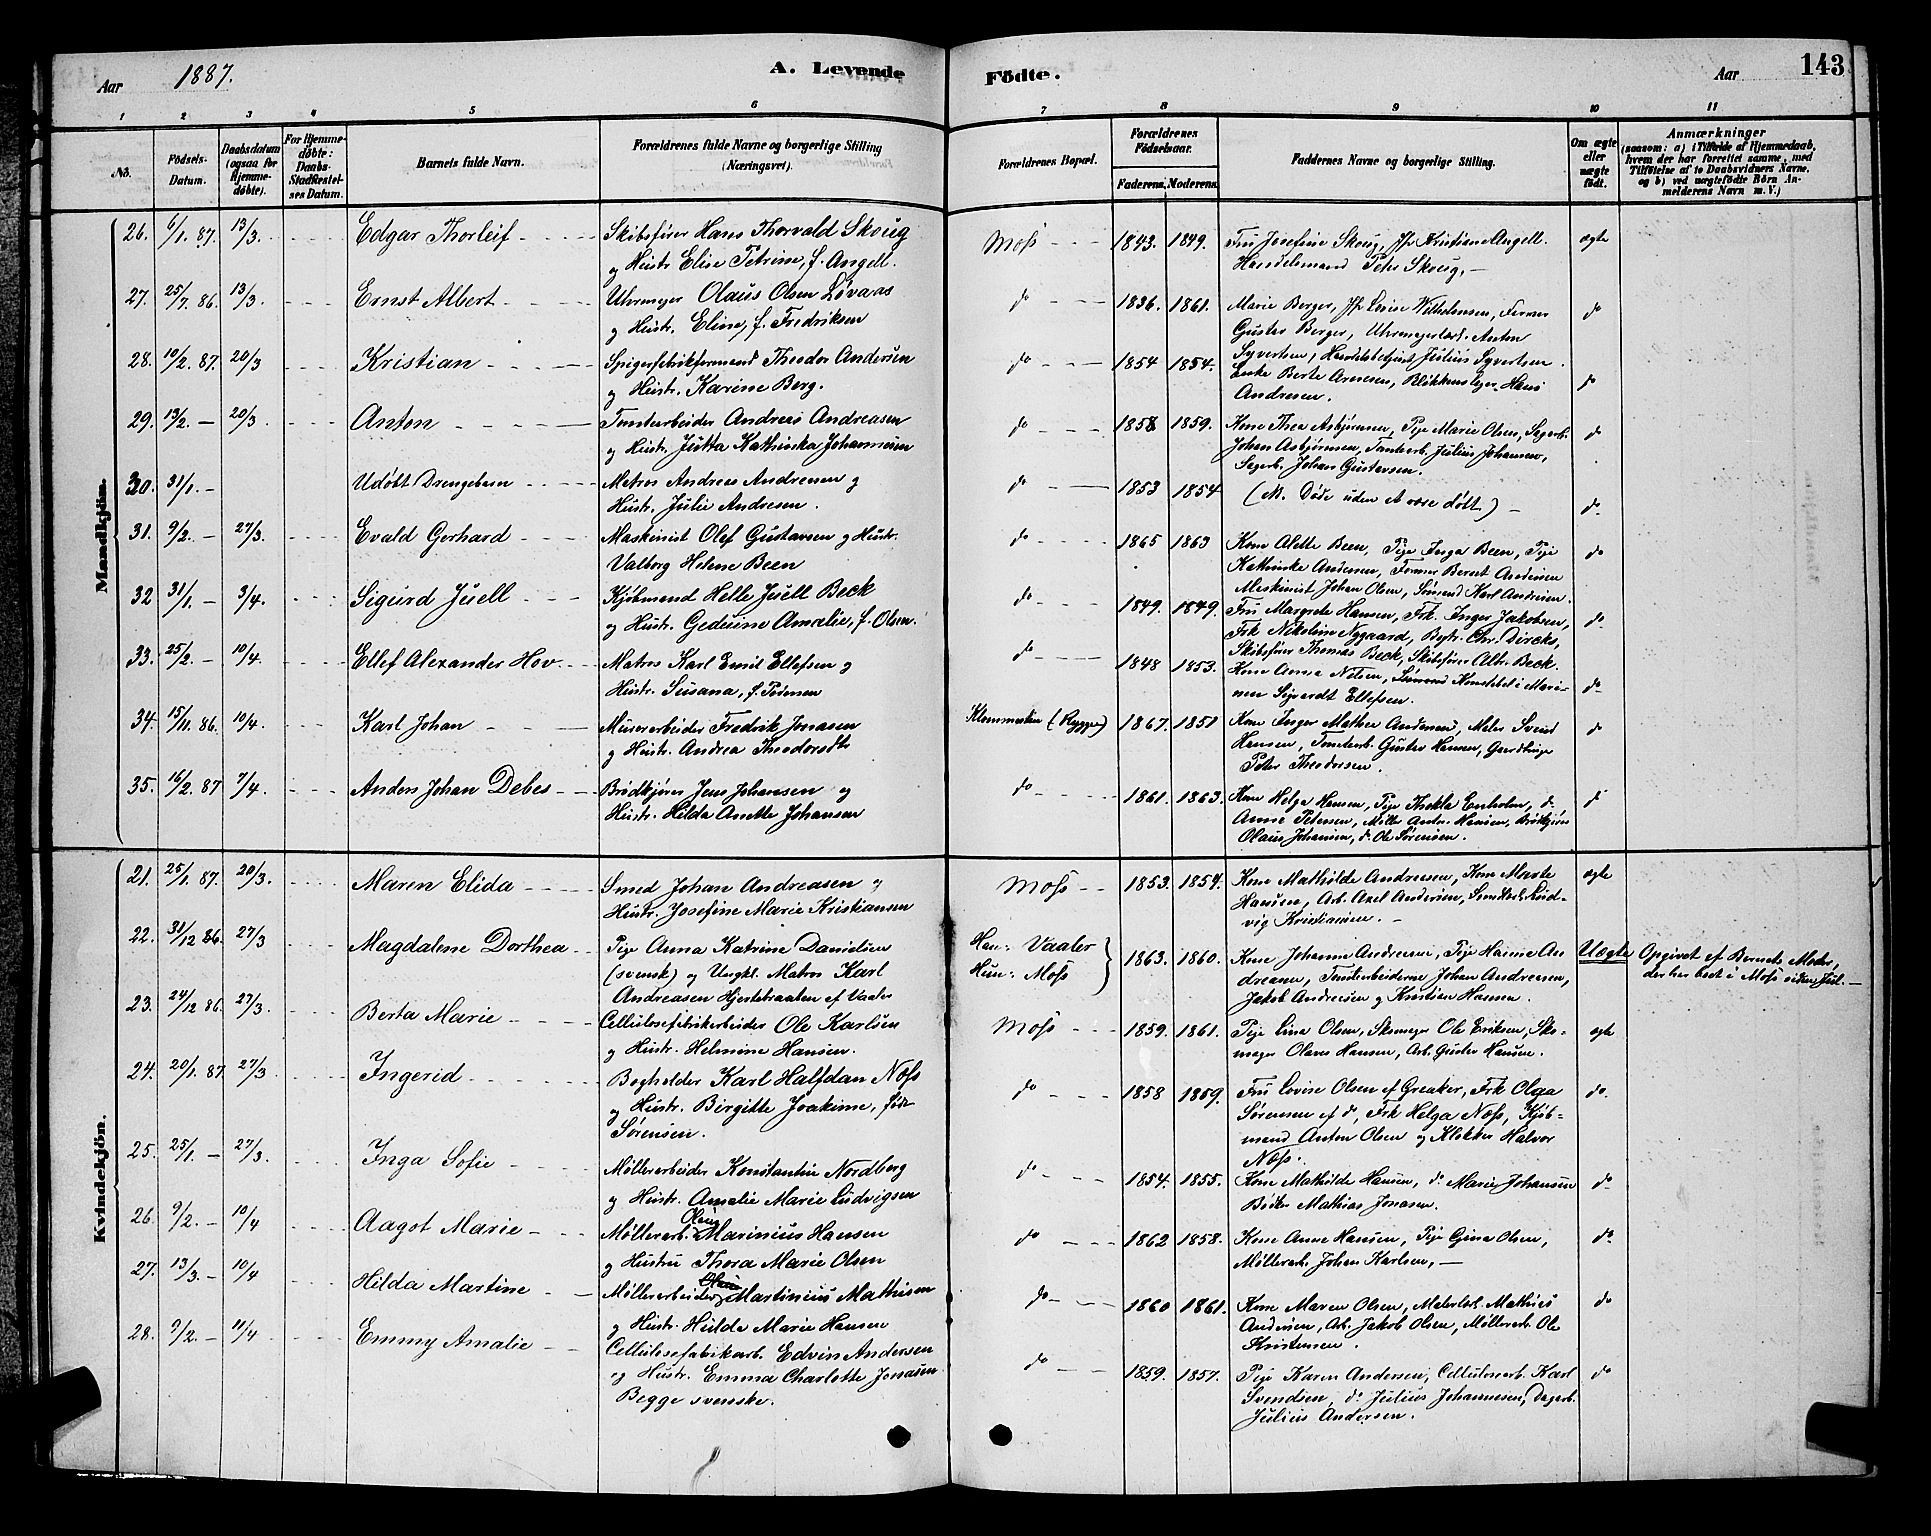 Aar 1887. A. Levende Fødte. Aar 143
1 2 3 4 5 6 7 8 9 10 11
No. Fødsels-Datum. Daabsdatum (ogsaa for Hjemme-døbte). For Hjemme-døbte: Daabs-Stadfæstel-ses Datum. Barnets fulde Navn. Forældrenes fulde Navne og borgerlige Stilling (Næringsvei). Forældrenes Bopæl. Forældrenes Fødselsaar. Faderens. Moderens. Faddernes Navne og borgerlige Stilling. Om ægte eller uægte født. Anmærkninger (saasom: a) i Tilfælde af Hjemmedaab, hvem der har forrettet samme, med Tilføielse af to Daabsvidners Navne, og b) ved uægtefødte Børn An-melderens Navn m. V.)
Mandkjön.
26. 6/1. 87. 13/3. Edgar Thorleif Skibsfører Hans Thorvald Skoug Moss 1843. 1849. Fru Josefine Skoug, Jfr Kristiane Angell. ægte
og Hustr. Elise Petrine, f. Angell. Handelsmand Peter Skoug,
27. 25/7. 86. 13/3. Ernst Albert Uhrmager Olaus Olsen Løvaas do 1836. 1861. Marie Berger, Jfr Lovise Wilhelmsen, Farver do
og Hustr. Eline, f. Fredriksen Gustav Berger, Uhrmagerlærl. Anton
28. 10/2. 87. 20/3 Kristian Spigerfabrikformand Theodor Andersen do 1854 1854. Syvertsen, Handelsbetjent Julius Syvertsen.
og Hustr. Karine Berg. Enke Berte Arnesen, Blikkenslager Hans do
Andresen.
29. 13/2. 20/3 Anton Tomtearbeider Andreas Andreasen do 1858 1859. Kone Thea Asbjørnsen, Pige Marie Olsen, Sagarb. do
og Hustr. Jutta Kathinka Johannesen Johan Asbjørnsen, Tomtearb. Julius Johansen,
Sagarb. Johan Gustavsen.
30. 31/1. Udøbt Drengebarn Matros Andreas Andresen og do 1853 1854 (N. Døde uden at være døbt) do
Hustr. Julie Andresen.
31. 9/2. 27/3. Evald Gerhard Maskinist Olaf Gustavsen og Hustr. do 1865 1863 Kone Alette Been, Pige Inga Been, Pige do
Valborg Helene Been Kathinka Andersen, Former Bernt Andersen
Maskinist Johan Olsen, Karl Andersen.
32 31/1. 3/4. Sigurd Juell Kjøbmand Helle Juell Beck do 1849. 1849. Fru Margrete Hansen, Frk. Inger Jakobsen, do
og Hustr. Gedusine Amalie, f. Olsen. Frk Nikoline Nygaard, Bgtr. Chr. Dircks,
Skibsfører Thomas Beck, Skibsfører Albr. Beck.
33. 25/2. 10/4. Ellef Alexander Hov Matros Karl Emil Ellefsen og do 1848 1853. Kone Anna Nilsen, Konstabel i Mari-
Hustr. Susana, f. nen Sigvardt Ellefsen. do
34. 15/11. 86. 10/4. Karl Johan Murerarbeider Fredrik Jonasen (Rygge) 1867. 1851 Kone Inger Mathea Andersen, Maler Svend do
og Hustr. Andrea Theodorsdtr Hansen, Tomtearb. Gustav Hansen, Gaardbruger
Peter Theodorsen.
35. 16/2. 87 7/4. Anders Johan Debes Brødkjører Jens Johansen og do 1861. 1863. Kone Helga Hansen, Pige Thekla Enholm, do do
Hustr. Hilda Anette Johansen Anna Petersen, Møller Anton Hansen, Brødkjører
Olaus Johansen, do Ole Sørensen.
Kvindekjön.
21. 25/1. 87. 20/3. Maren Elida Smed Johan Andreasen og Moss 1853. 1854. Kone Mathilde Andreasen, Kone Marte ægte
Hustr. Josefine Marie Kristiansen Hansen, Arb. Axel Andersen, Lud-
vig Kristiansen.
22. 31/12 86. 27/3 Magdalene Dorthea Pige Anna Katrine Danielsen Han: Vaaler 1863. 1860. Kone Johanne Andresen, Pige Hanna An- Uægte Opgivet af Barnets Moder,
(svensk) og Ungkl. Matros Karl Hun: Moss dreasen, Tomtearbeiderne Johan Andreasen, der har bot i Moss siden Jul.
Andreasen Hjertebraaten af Vaaler Jakob Andreasen og Kristian Hansen.
23. 24/12 86. 27/3. Berta Marie Cellulosefabrikarbeider Ole Karlsen Moss 1859. 1861. Pige Lina Olsen, Skomager Ole Eriksen, Sko- ægte
og Hustr. Helmine Hansen. mager Olaves Hansen, Arb. Gustav Hansen.
24. 20/1. 87 27/3 Ingerid Bogholder Karl Halfdan Næss do 1858 1859. Fru Lovise Olsen af Greaker, Frk Olga do.
og Hustr. Birgitte Joakime, født Sørensen af do, Frk Helga Næss, Kjøb-
Sørensen. mand Anton Olsen og Klokker Halvor
Næss.
25. 25/1. 27/3. Inga Sofie Møllerarbeider Konstantin Nordberg do 1854. 1855. Kone Mathilde Hansen, do Marie Johansen do
og Hustr. Amalie Marie Ludvigsen Bødker Mathias Jonasen.
26. 9/2. 10/4 Aagot Marie Møllerarb. Olaus Marinius Hansen do 1862 1858. Kone Anne Hansen, Pige Gina Olsen, do
og Hustru Thora Marie Olsen Møllerarb. Johan Karlsen,
27. 13/3. 10/4 Hilda Martine Møllerarbeider Martinius Mathisen do 1860 1861. Kone Maren Olsen, Malerlærl. Mathias do
og Hustr. Hulda Marie Hansen Andersen, Arb. Jakob Olsen, Møllerarb. Ole
Kristensen.
28. 9/2. 11/4 Emmy Amalie Cellulosefabrikarb. Edvin Andersen do 1859. 1857. Pige Karen Andersen, Cellulosearb. Karl do
og Hustr. Emma Charlotte Jonasen Svendsen, do Julius Johannesen, Dagarb.
Begge svenske. Julius Andersen.